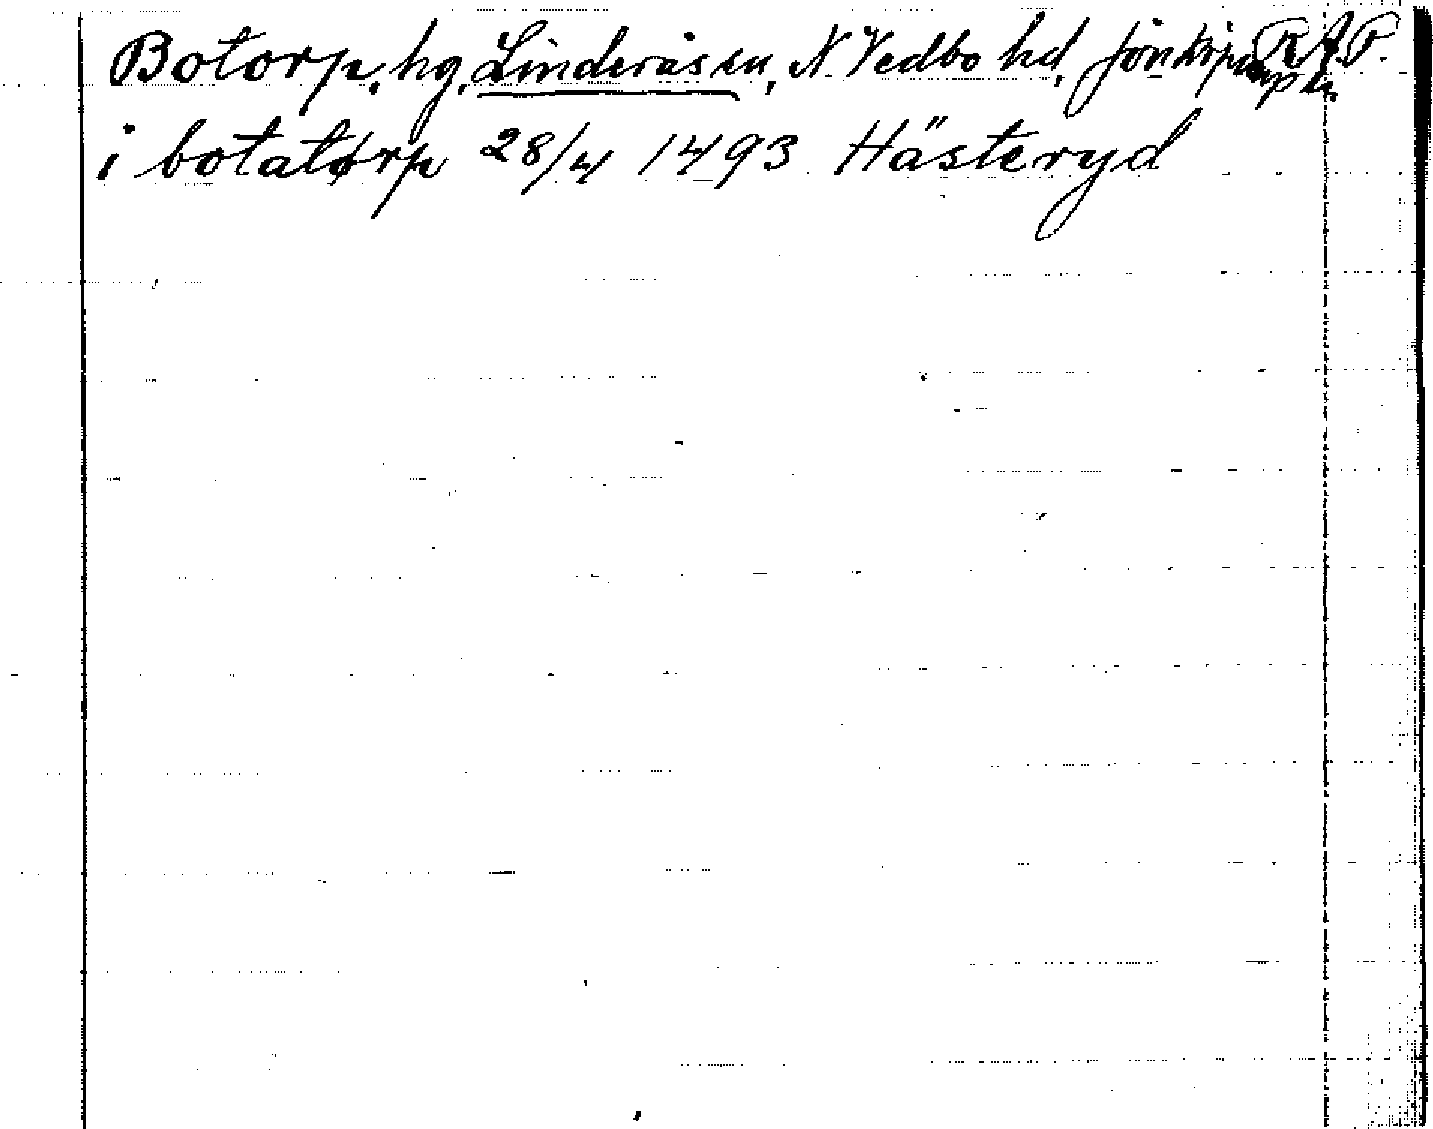 Botorp, hg, Linderås sn, N Vedbo hd, Jönköpings ln, RAP.
i botatørp 28/4 1493 Hästeryd